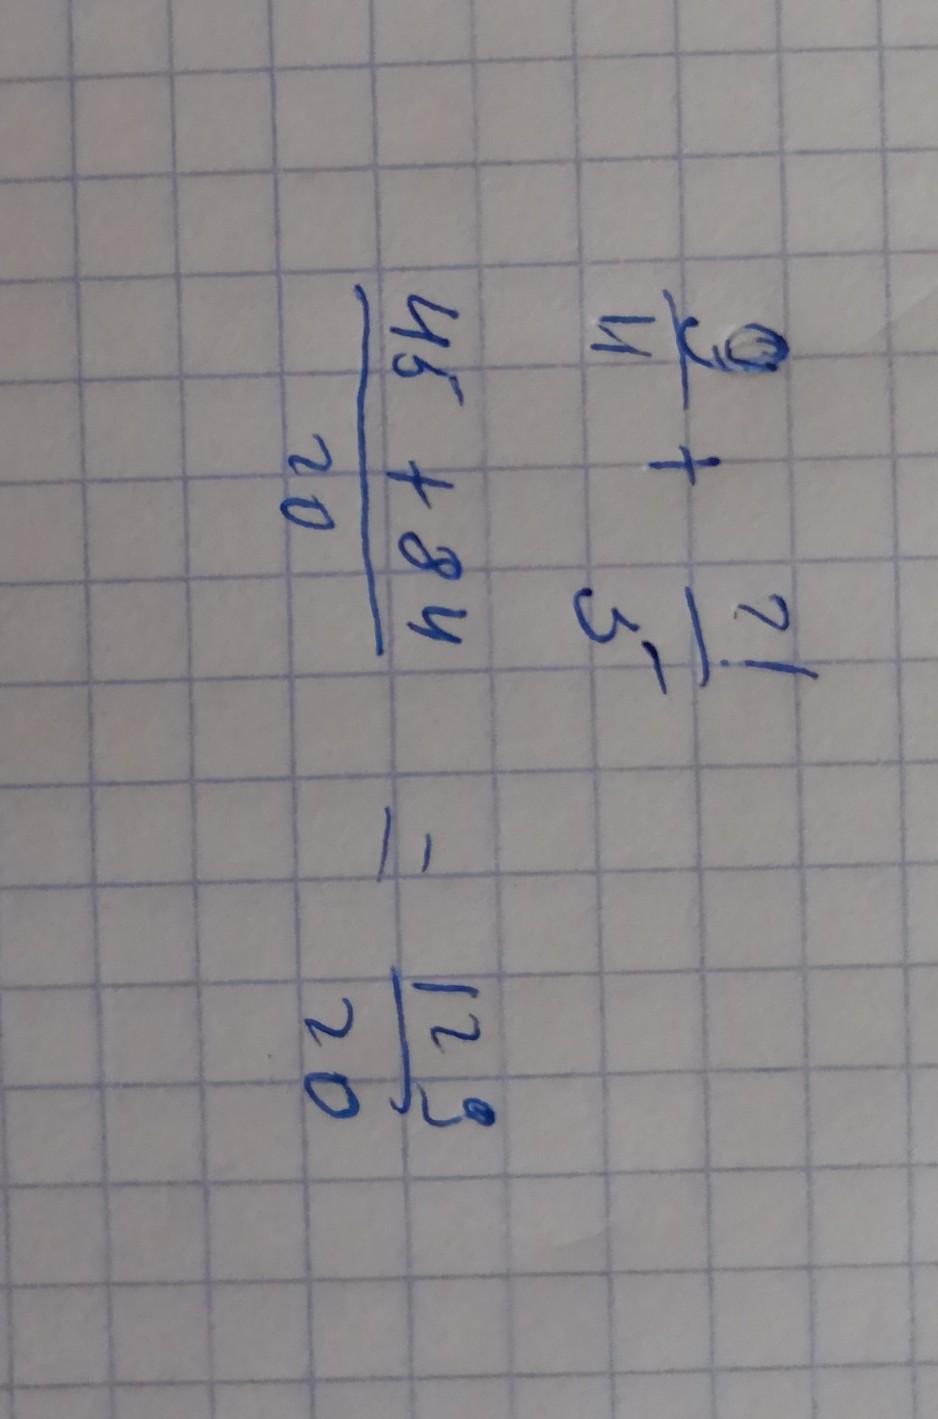 9/4 + 21/5
(45 + 84)/20 = 129/20